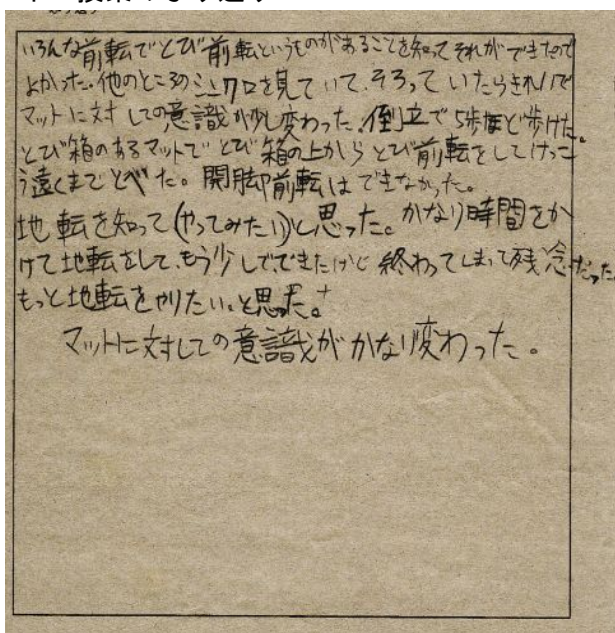 いろんな前転でとび前転というものがあることを知ってそれができたので
よかった。他のところのシンクロを見ていて、そろっていたらきれいで
マットに対しての意識が少し変わった。倒立で5歩ほど歩けた。
とび箱のあるマットでとび箱の上からとび前転をしてけっこ
う遠くまでとべた。開脚前転はできなかった。
地転を知って(やってみたい)と思った。かなり時間をか
けて地転をして、もう少しでできたけど終わってしまって残念だった。
もっと地転をやりたい。と思った。
マットに対しての意識がかなり変わった。